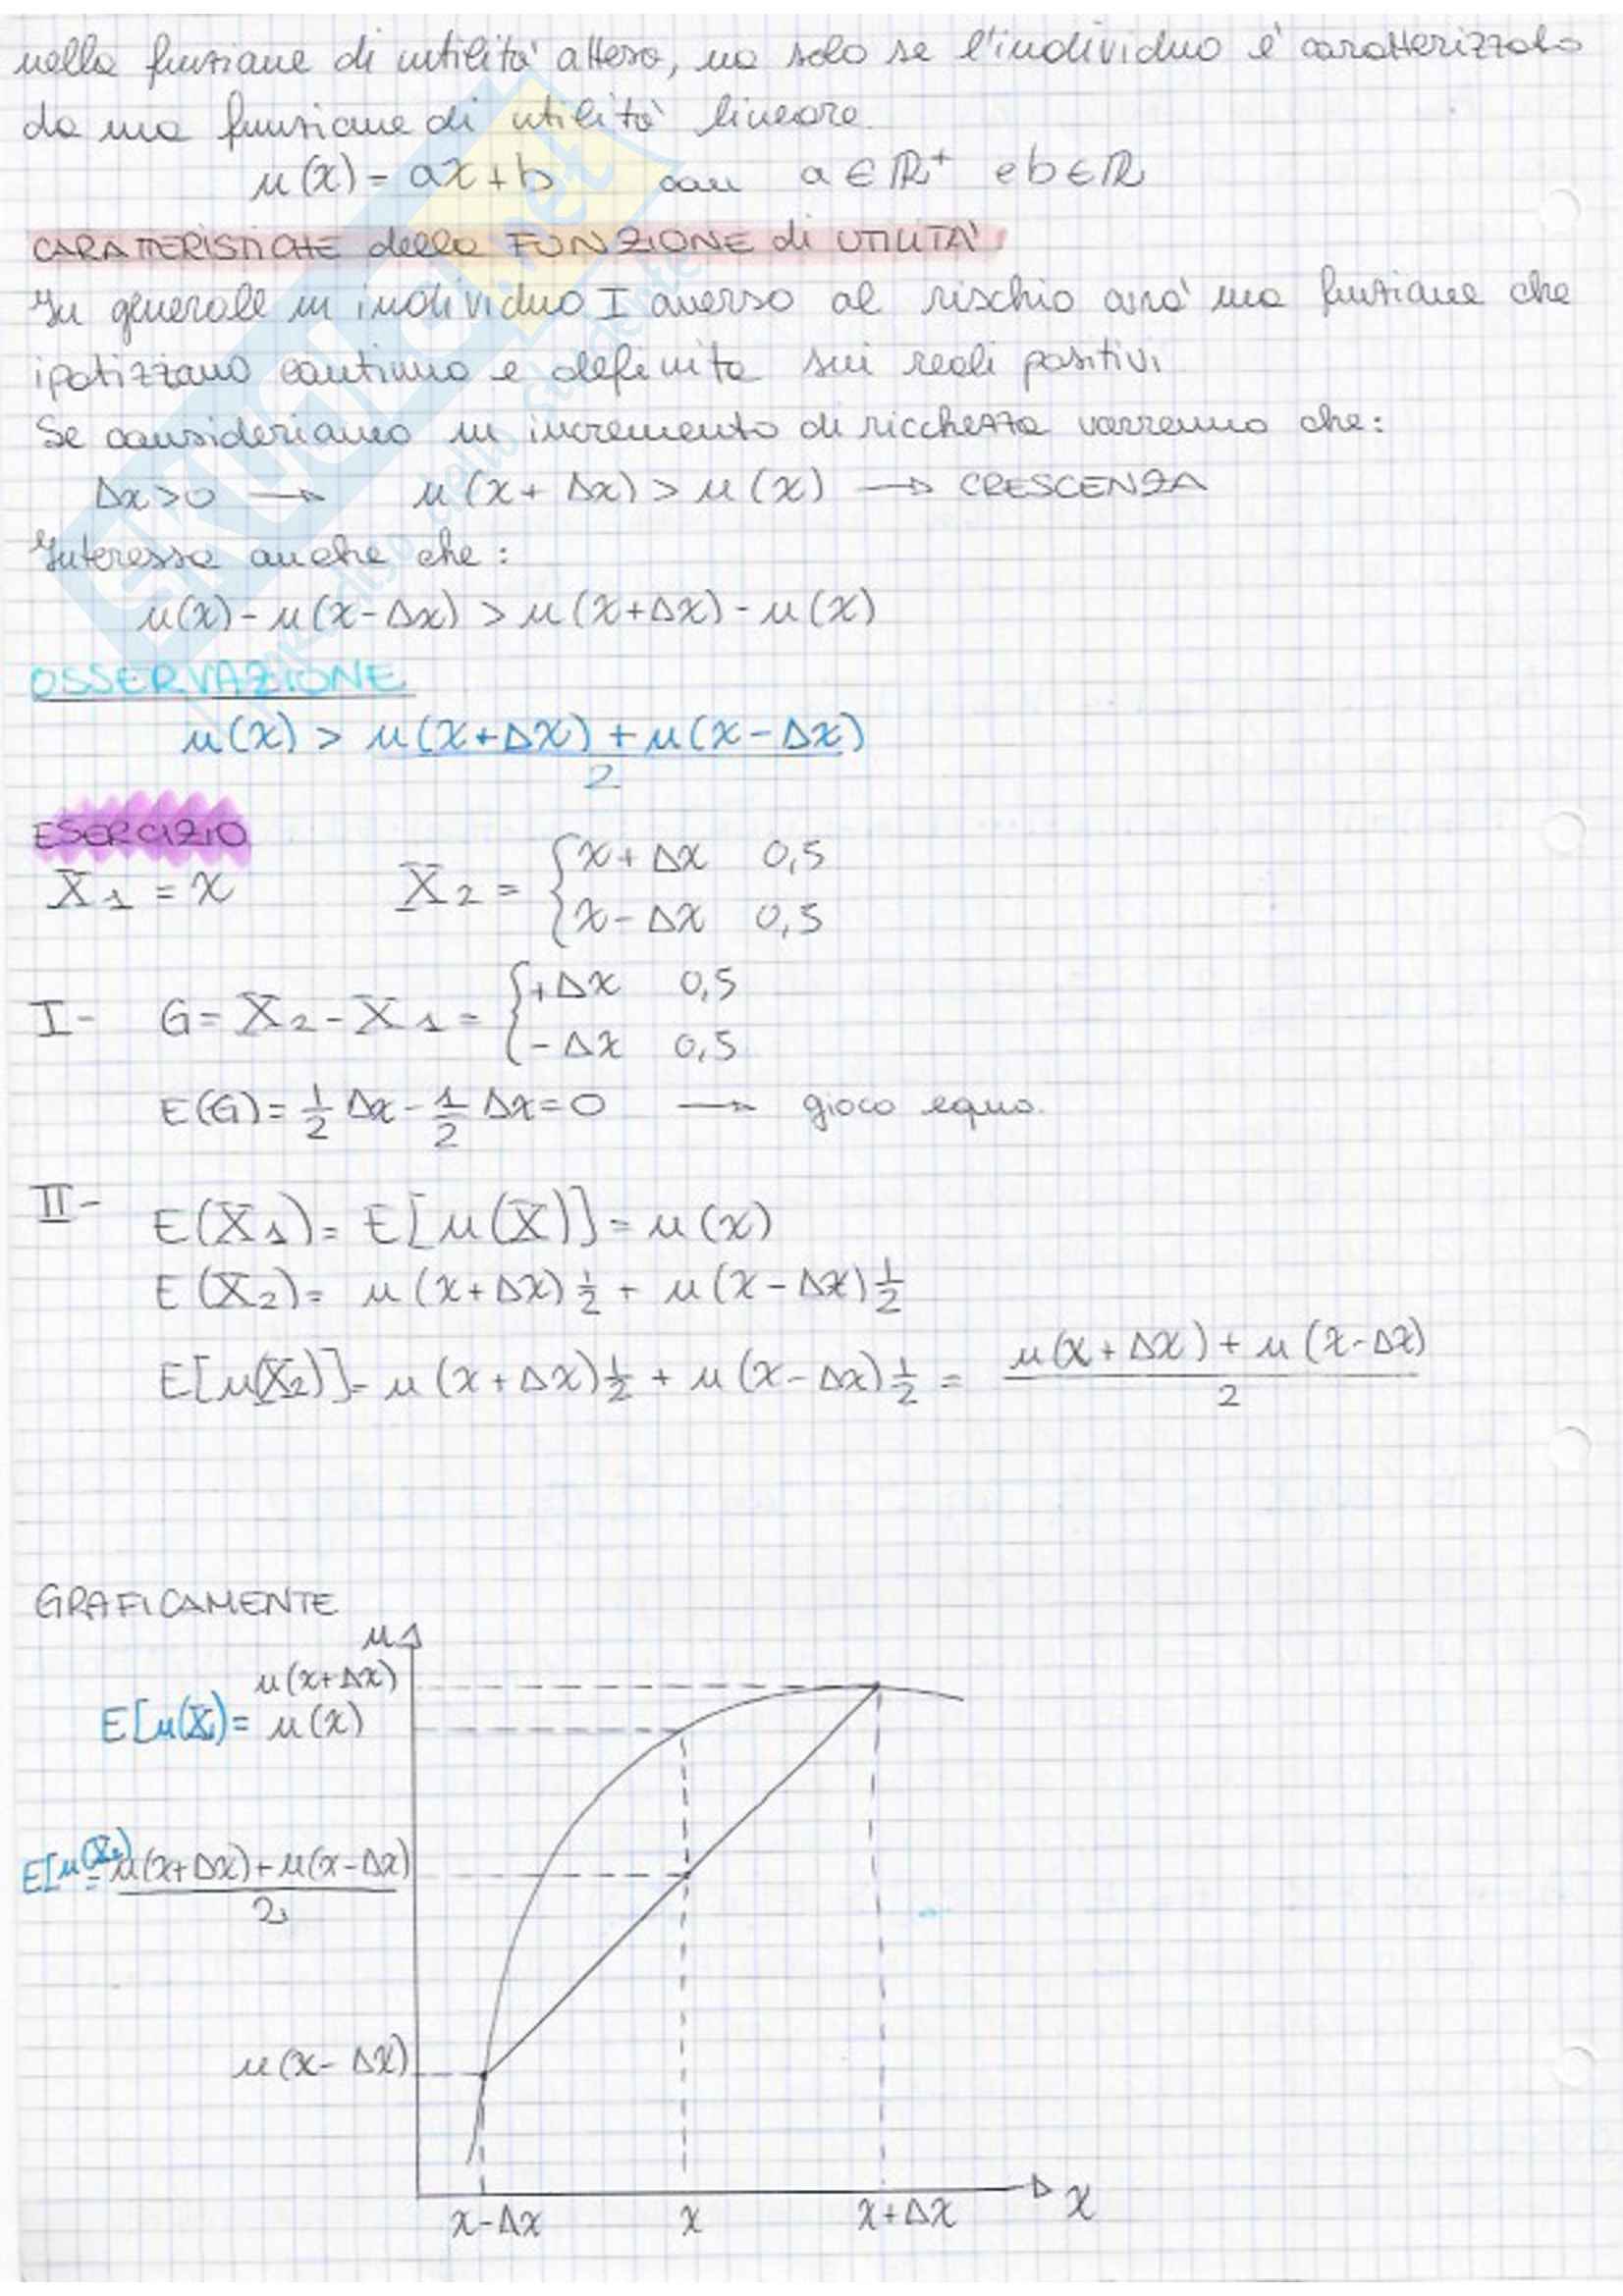 nella funzione di utilità attesa, ma solo se l'individuo è caratterizzato
da una funzione di utilità lineare
u(x) = ax + b con a ∈ ℝ⁺ e b ∈ ℝ
CARATTERISTICHE della FUNZIONE di UTILITÀ
In generale un individuo I averso al rischio avrà una funzione che
ipotizzano continua e definita sui reali positivi
Se consideriamo un incremento di ricchezza varremo che:
Δx > 0 → u(x + Δx) > u(x) → CRESCENZA
Interessa anche che:
u(x) - u(x - Δx) > u(x + Δx) - u(x)
OSSERVAZIONE
u(x) > u(x + Δx) + u(x - Δx)
2
ESERCIZIO
X₁ = x X₂ = { x + Δx 0,5
x - Δx 0,5
I- G = X₂ - X₁ = { +Δx 0,5
-Δx 0,5
E(G) = 1/2 Δx - 1/2 Δx = 0 → gioco equo.
II- E(X₁) = E[u(X)] = u(x)
E(X₂) = u(x + Δx) 1/2 + u(x - Δx) 1/2
E[u(X₂)] = u(x + Δx) 1/2 + u(x - Δx) 1/2 = u(x + Δx) + u(x - Δx)
2
GRAFICAMENTE
u
u(x+Δx)
E[u(X₁) = u(x)
E[u(X₂) = u(x+Δx) + u(x-Δx)
2
u(x - Δx)
x-Δx x x+Δx x